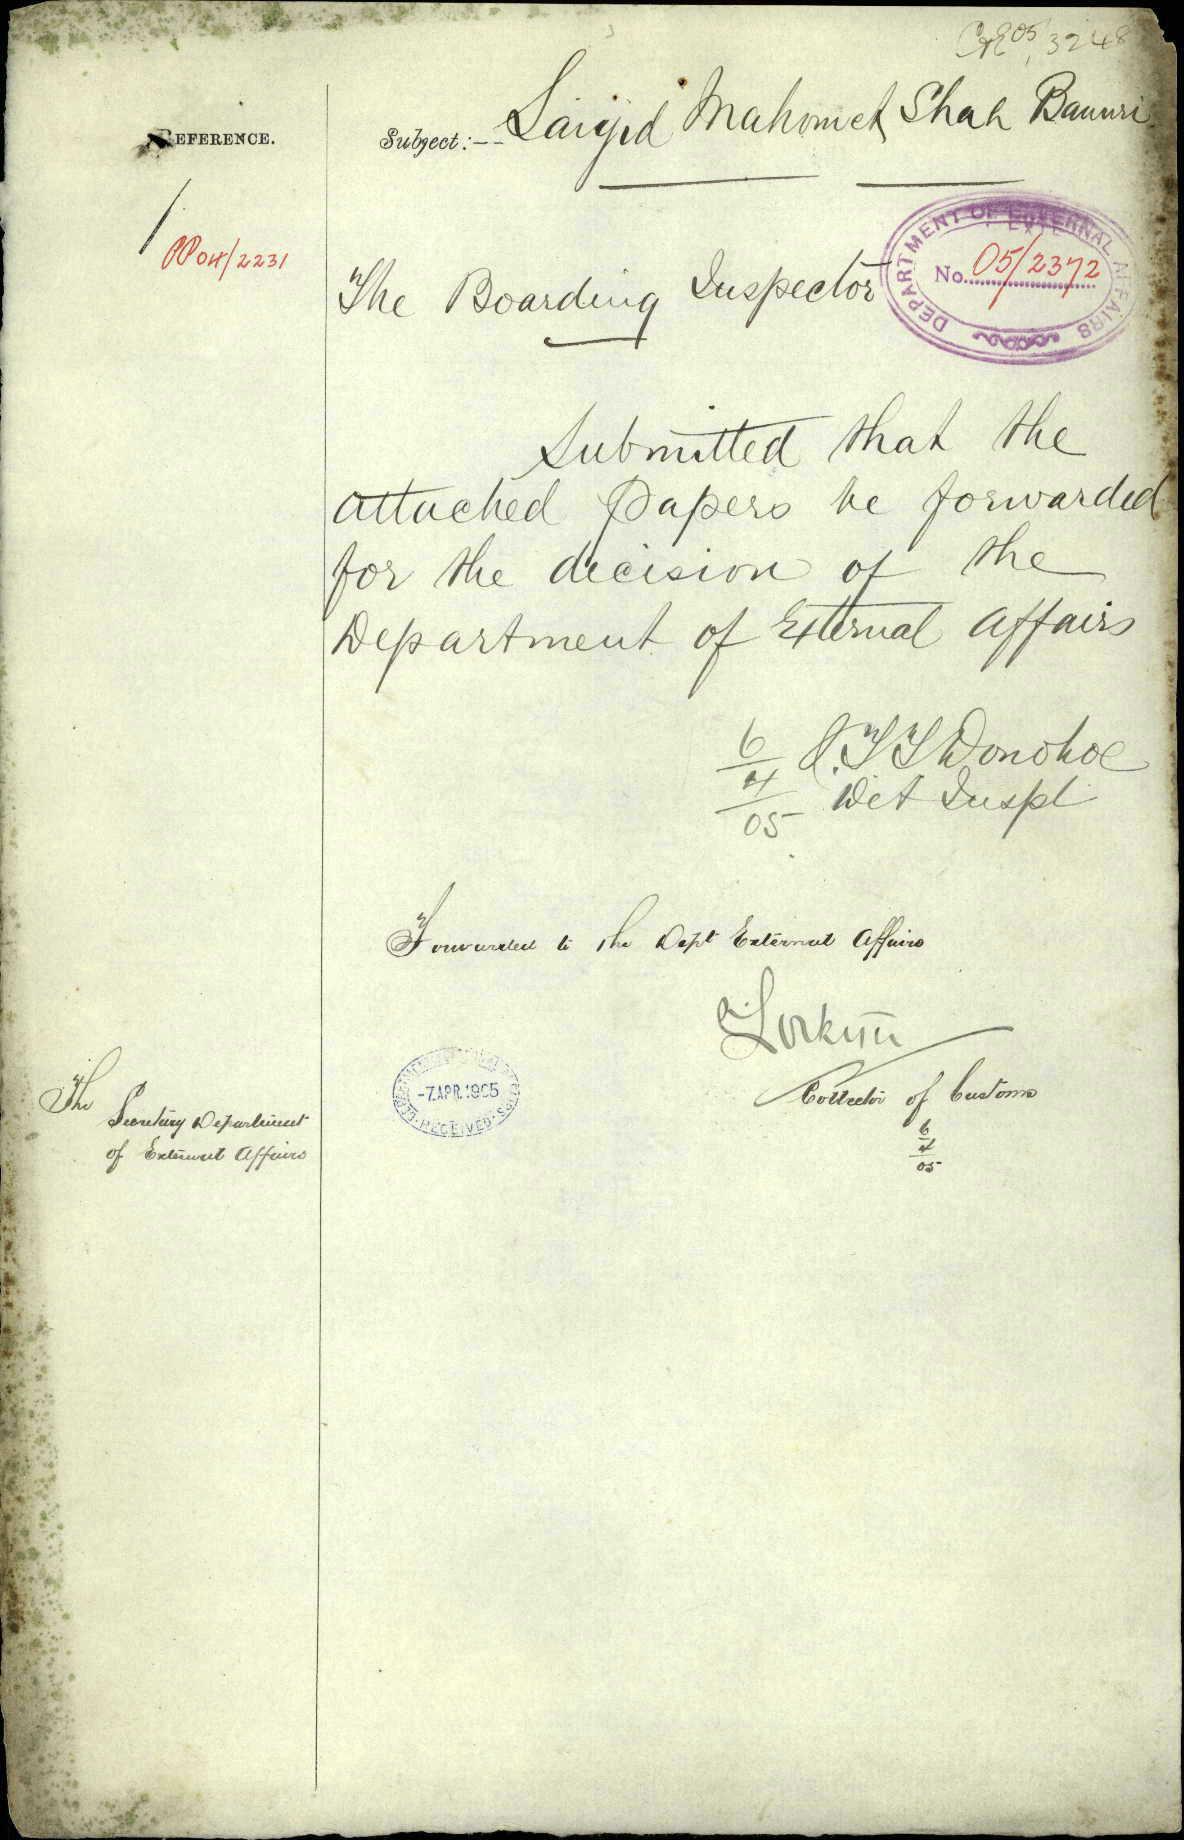 05, 3248
REFERENCE.
Subject:-- Saiyid Mahomet Shah Banuri
PP04/2231
DEPARTMENT OF EXTERNAL AFFAIRS
No. 05/2372
The Boarding Inspector
Submitted that the
attached papers be forwarded
for the decision of the
Department of External Affairs
6/4/05 Donohoe
Det Inspr
Forwarded to the Dept External Affairs
Collector of Customs
6/4/05
-7.APR.1905
RECEIVED
The
Secretary Department
of External Affairs